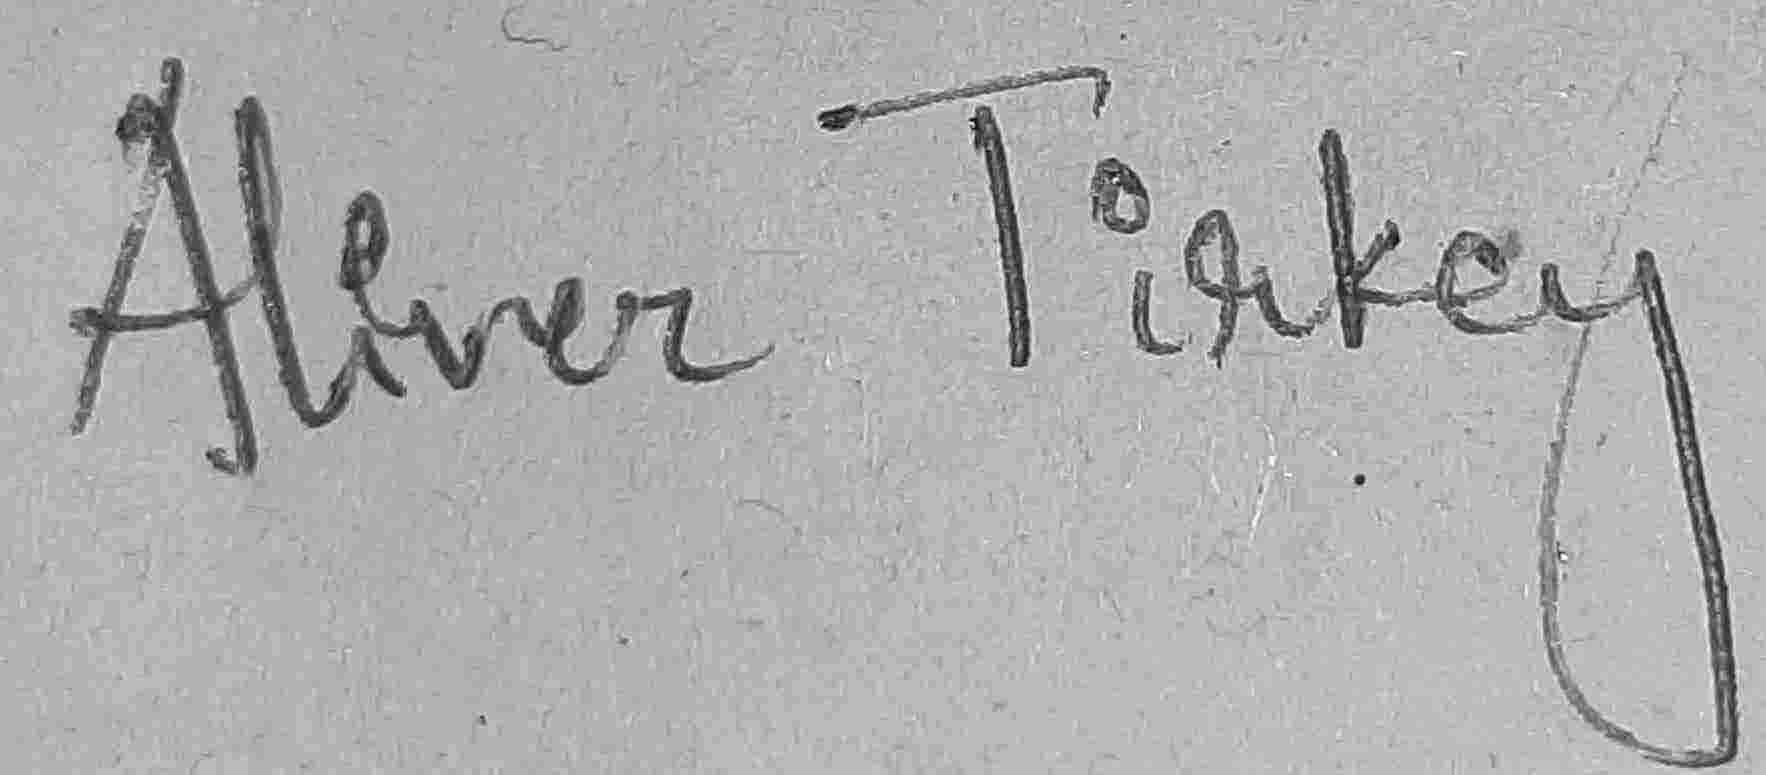 Aliver Tirkey